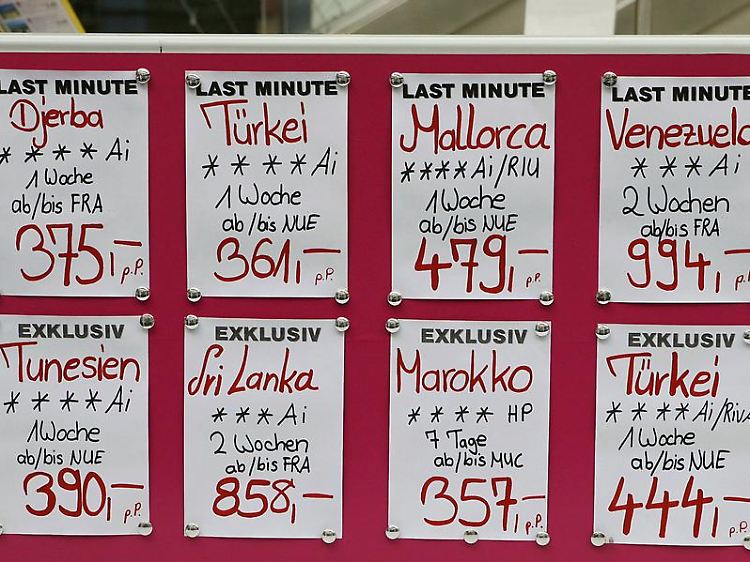 LAST MINUTE
Djerba
* * * * Ai
1 Woche
ab/bis FRA
375,- p.P.
LAST MINUTE
Türkei
* * * * Ai
1 Woche
ab/bis NUE
361,- p.P.
LAST MINUTE
Mallorca
****Ai/RIU
1 Woche
ab/bis NUE
479,- p.P.
LAST MINUTE
Venezuela
* * * Ai
2 Wochen
ab/bis FRA
994,- p.
EXKLUSIV
Tunesien
* * * * Ai
1 Woche
ab/bis NUE
390,- p.P.
EXKLUSIV
Sri Lanka
* * * Ai
2 Wochen
ab/bis FRA
858,-
EXKLUSIV
Marokko
* * * * HP
7 Tage
ab/bis MUC
357,- p.P.
EXKLUSIV
Türkei
* * * * Ai/Riva
1 Woche
ab/bis NUE
444,- p.P.